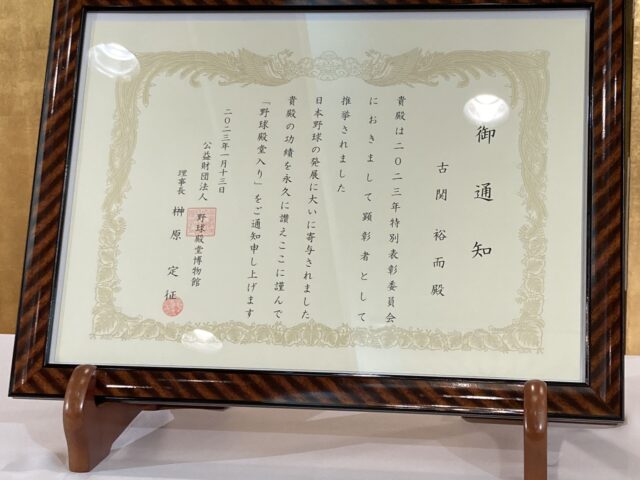 御通知
古関裕而殿
貴殿は二〇二三年特別表彰委員会
におきまして顕彰者として
推挙されました
日本野球の発展に大いに寄与されました
貴殿の功績を永久に讃えここに謹んで
「野球殿堂入り」をご通知申し上げます
二〇二三年一月十三日
公益財団法人
野球殿堂博物館
理事長 榊原定征